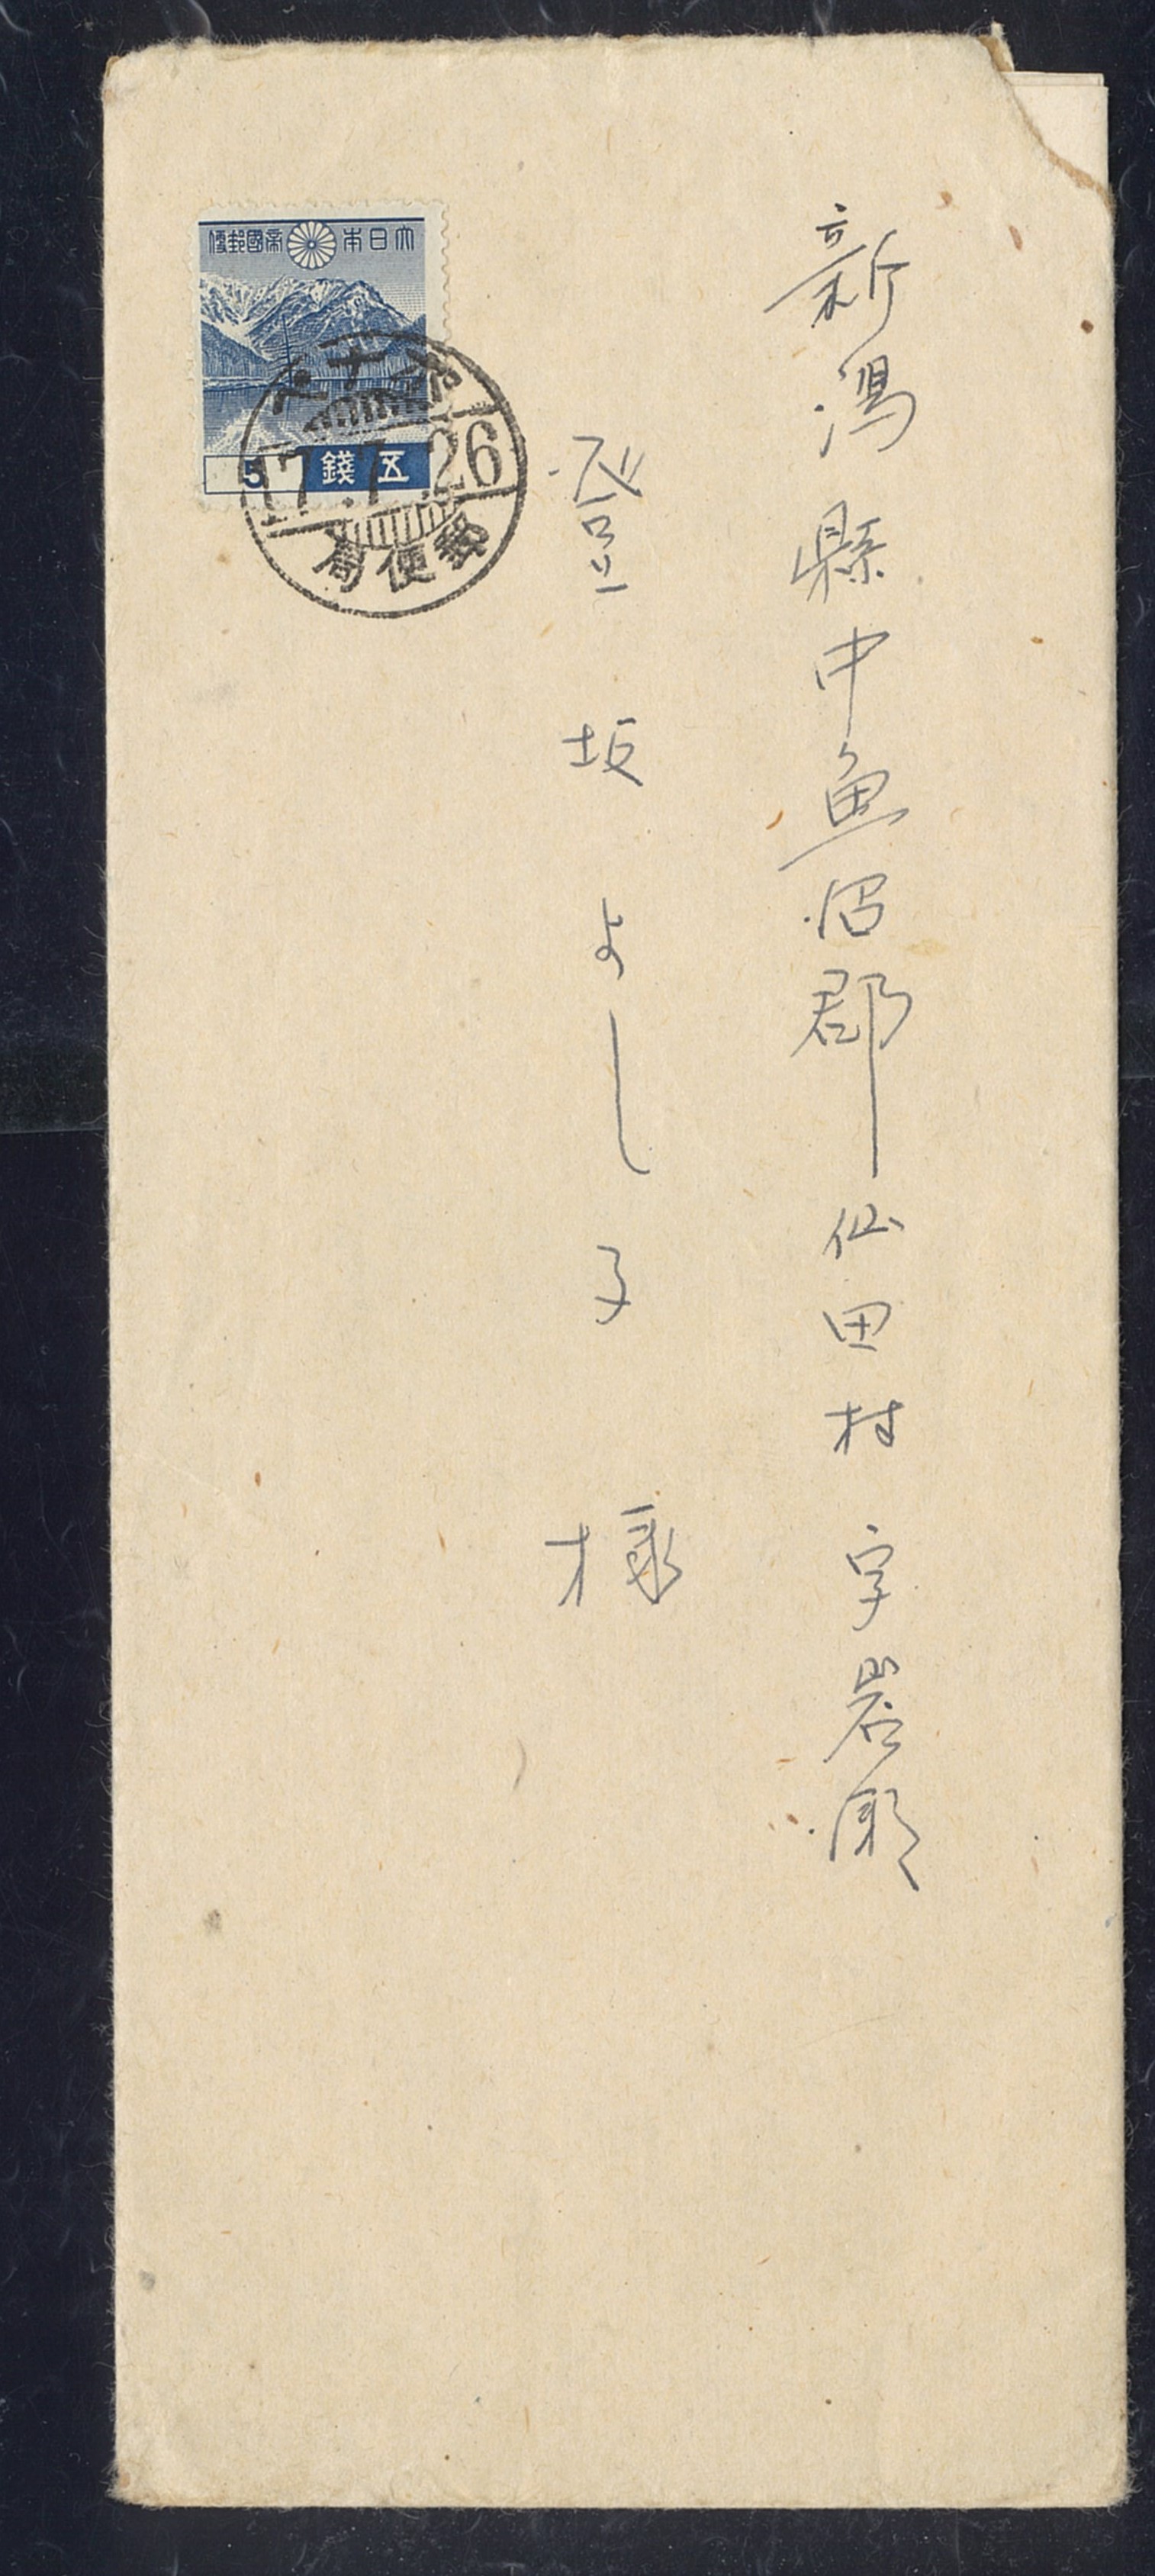 新潟縣中魚沼郡仙田村字岩瀬
登坂よし子様
大日本帝國郵便
5 五錢
17.7.26
郵便局